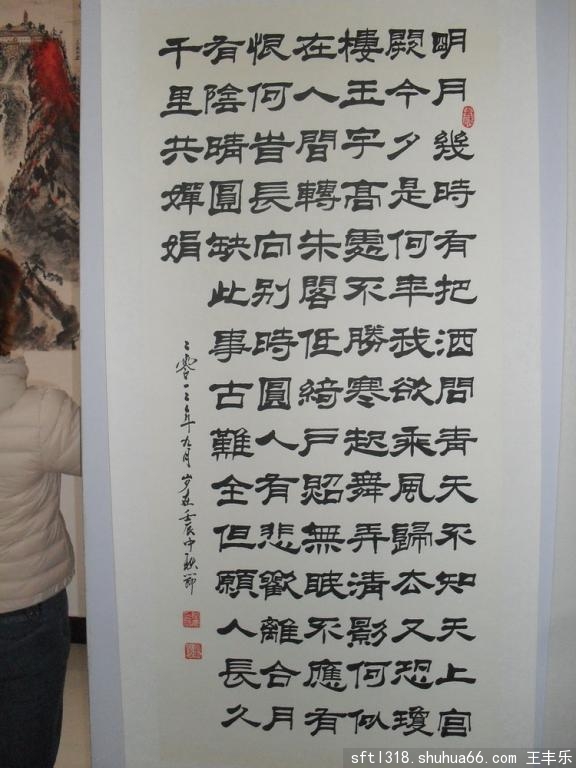 明月幾時有把酒問青天不知天上宮
闕今夕是何年我欲乘風歸去又恐瓊
樓玉宇高處不勝寒起舞弄清影何似
在人間轉朱閣低綺戶照無眠不應有
恨何昔長向別時圓人有悲歡離合月
有陰晴圓缺此事古難全但願人長久
千里共嬋娟
二零一二年九月岁在壬辰中秋節
sftl318.shuhua66.com 王丰乐